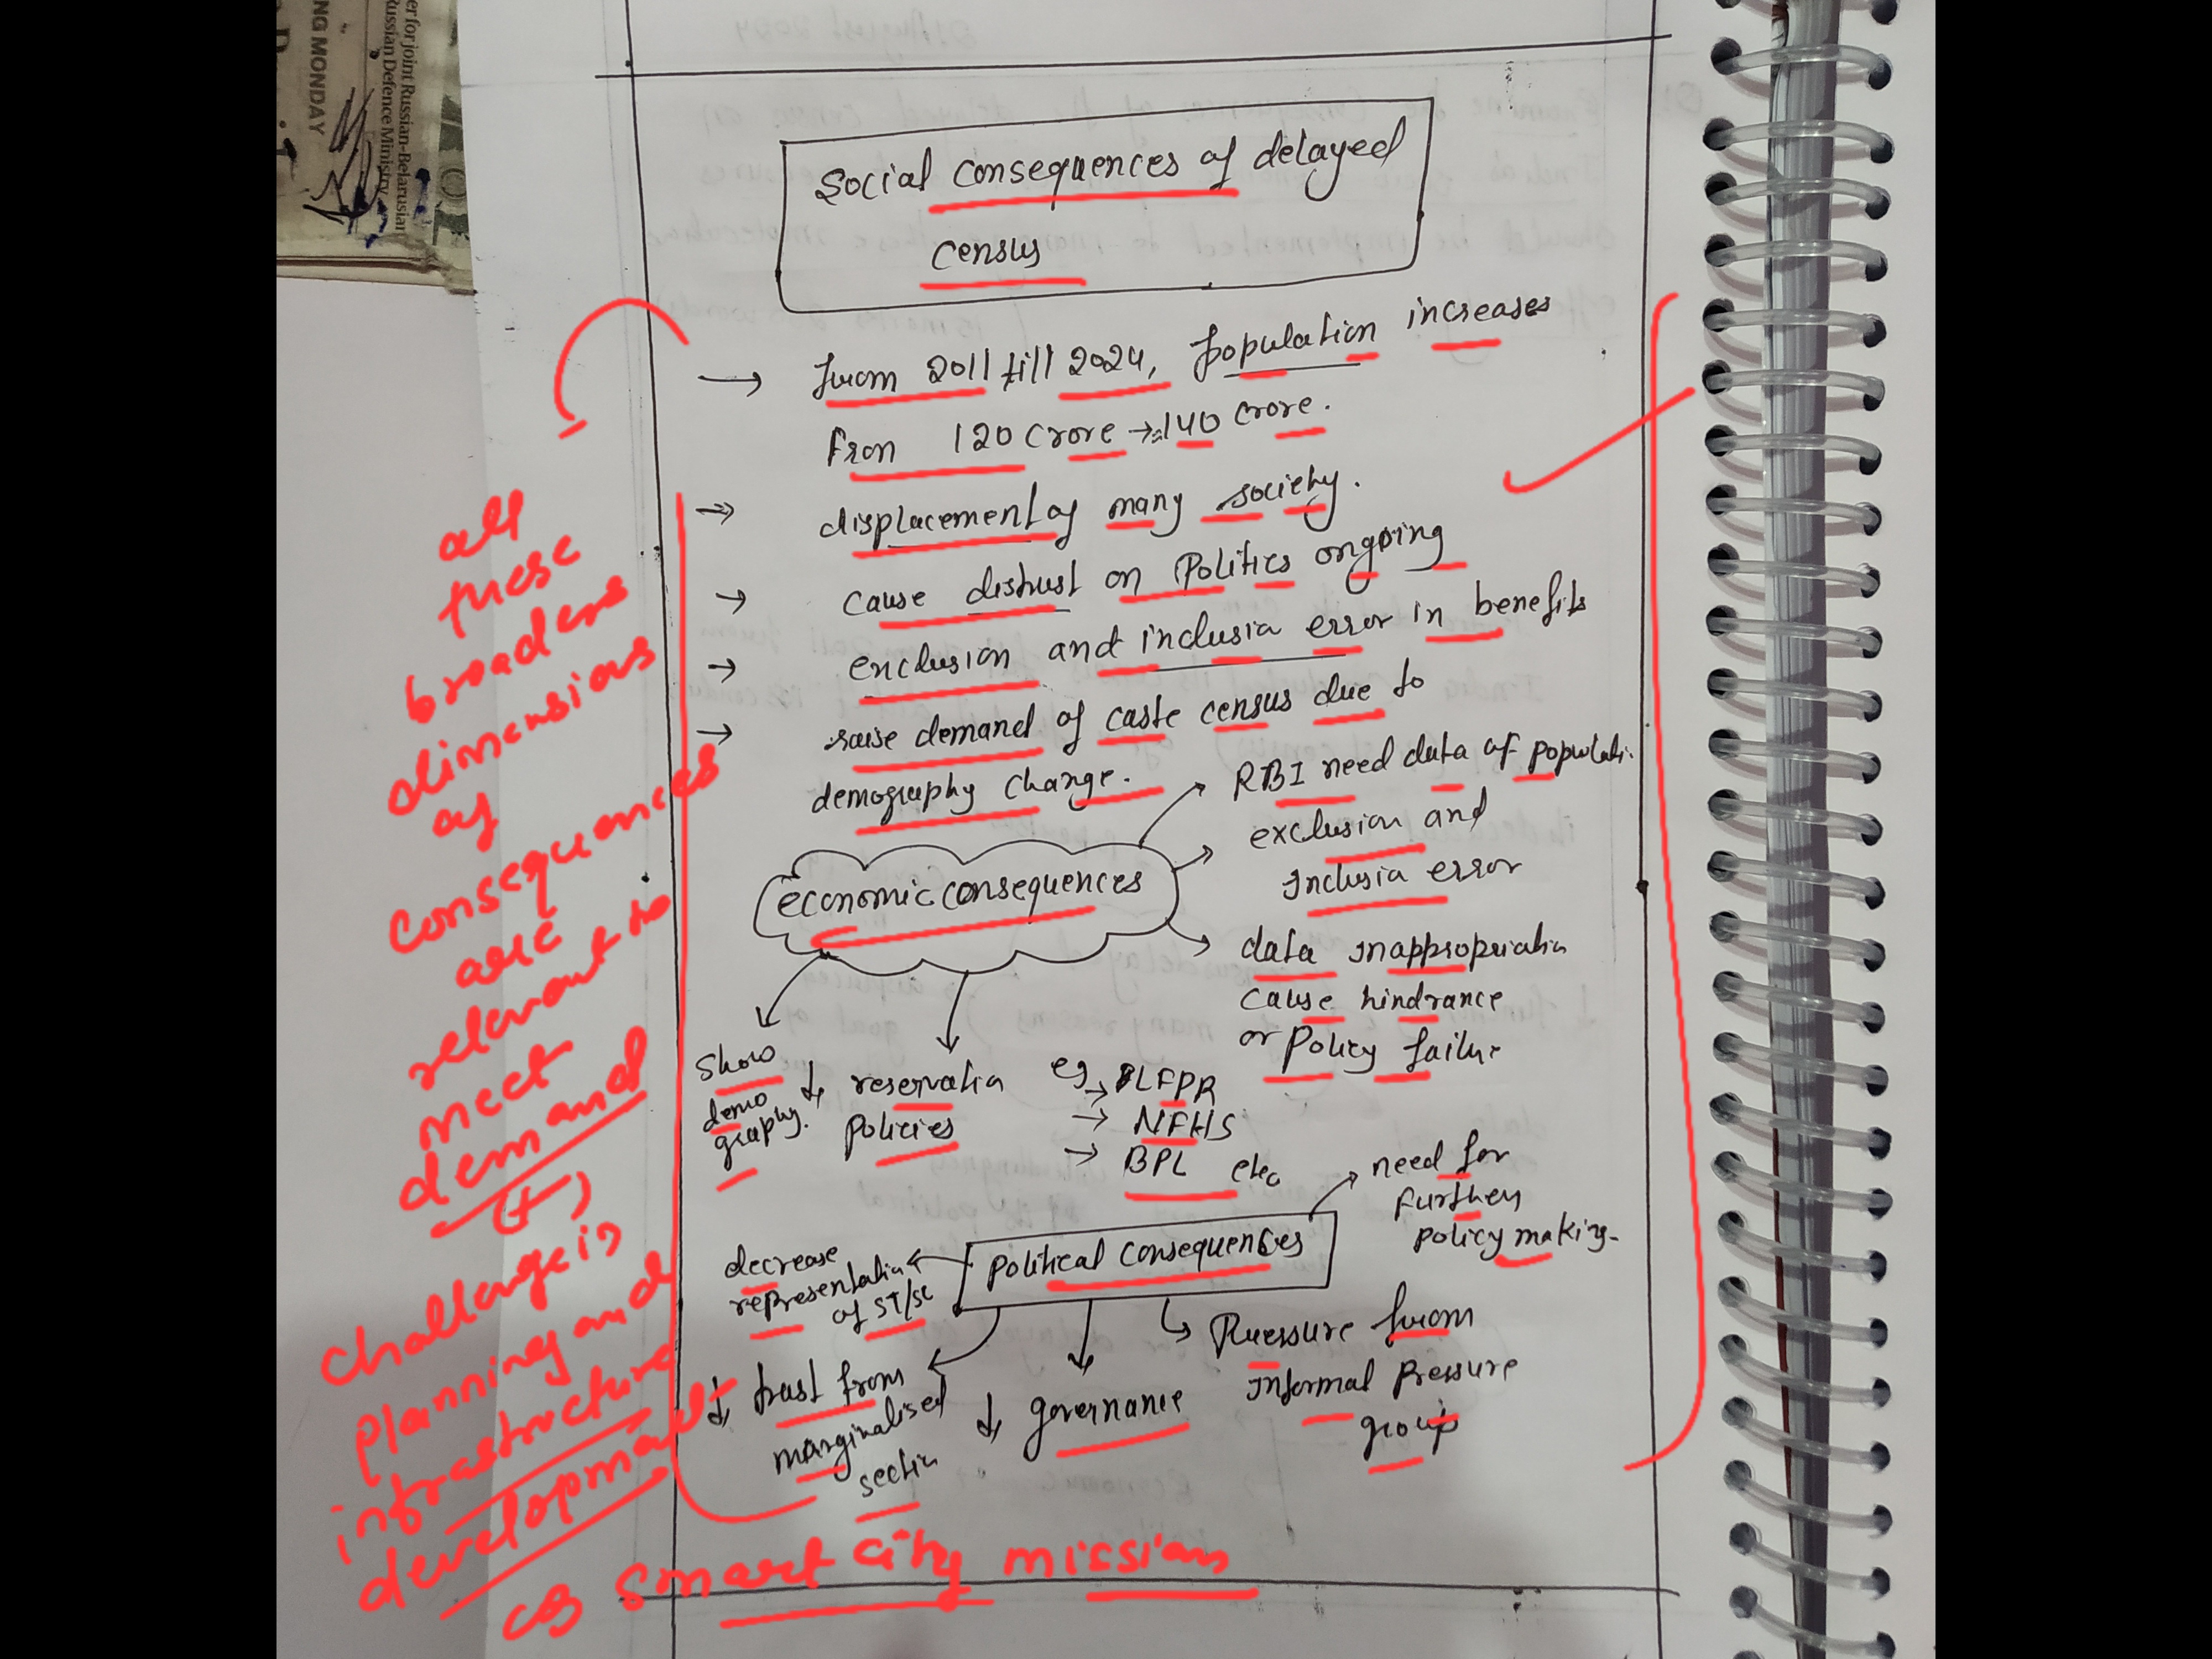 er for joint Russian-Belarusian
Russian Defence Ministry
NG MONDAY
Social Consequences of delayed
Census
from 2011 till 2024, population increases
from 120 crore → 140 crore.
displacement of many society.
cause distrust on Politics ongoing
exclusion and inclusion error in benefits
raise demand of caste census due to
demography change.
RBI need data of populati.
exclusion and
Inclusion error
economic consequences
data inappropriatin
cause hindrance
or policy failure
show
demo
graphy.
↓ reservatin
policies
eg → PLFPR
→ NFHS
→ BPL etc
need for
further
policy making.
political consequences
decrease
representatin
of ST/SC
↓ trust from
marginalised
sectin
↓ governance
Pressure from
Informal pressure
group
all
these
broaders
dimensions
of
consequences
are
relevant to
meet
demand
(+)
challenge in
planning and
infrastructure
development
eg smart city mission